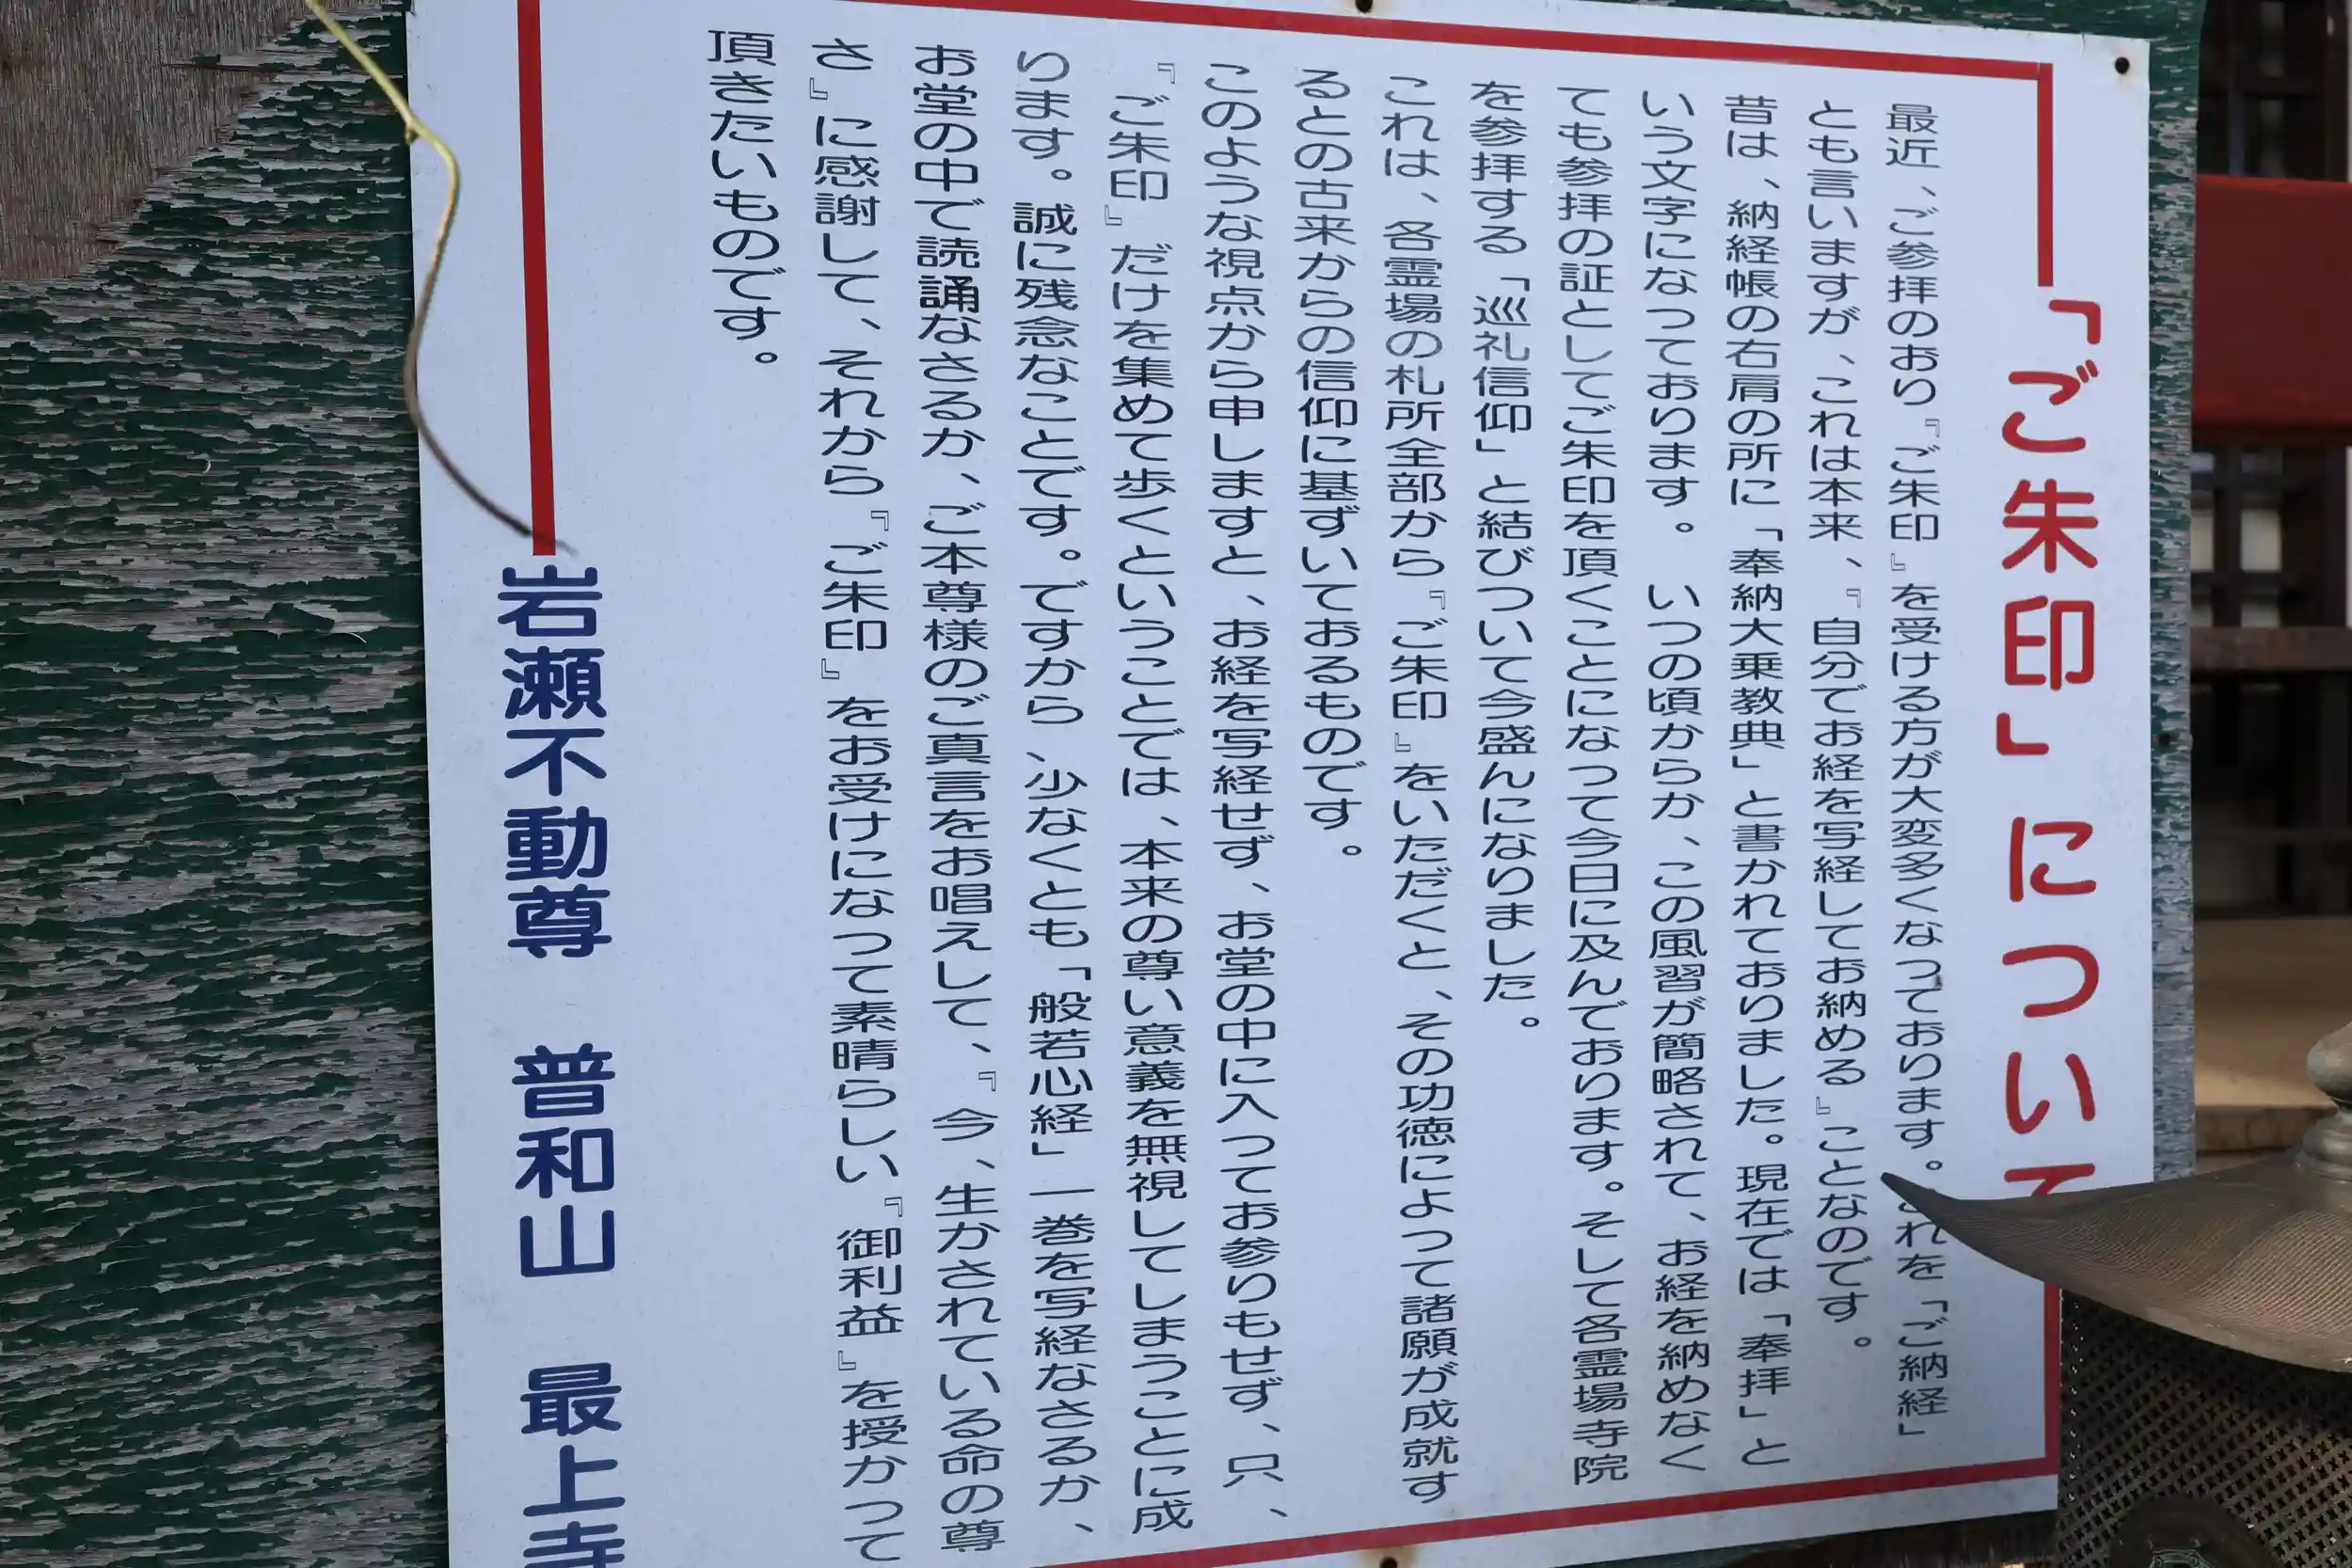 「ご朱印」について
最近、ご参拝のおり『ご朱印』を受ける方が大変多くなっております。これを「ご納経」
とも言いますが、これは本来、『自分でお経を写経してお納める』ことなのです。
昔は、納経帳の右肩の所に「奉納大乗教典」と書かれておりました。現在では「奉拝」と
いう文字になっております。 いつの頃からか、この風習が簡略されて、お経を納めなく
ても参拝の証としてご朱印を頂くことになって今日に及んでおります。そして各霊場寺院
を参拝する「巡礼信仰」と結びついて今盛んになりました。
これは、各霊場の札所全部から『ご朱印』をいただくと、その功徳によって諸願が成就す
るとの古来からの信仰に基ずいておるものです。
このような視点から申しますと、お経を写経せず、お堂の中に入ってお参りもせず、只、
『ご朱印』だけを集めて歩くということでは、本来の尊い意義を無視してしまうことに成
ります。誠に残念なことです。ですから、少なくとも「般若心経」一巻を写経なさるか、
お堂の中で読誦なさるか、ご本尊様のご真言をお唱えして、『今、生かされている命の尊
さ』に感謝して、それから『ご朱印』をお受けになって素晴らしい『御利益』を授かって
頂きたいものです。
岩瀬不動尊 普和山 最上寺